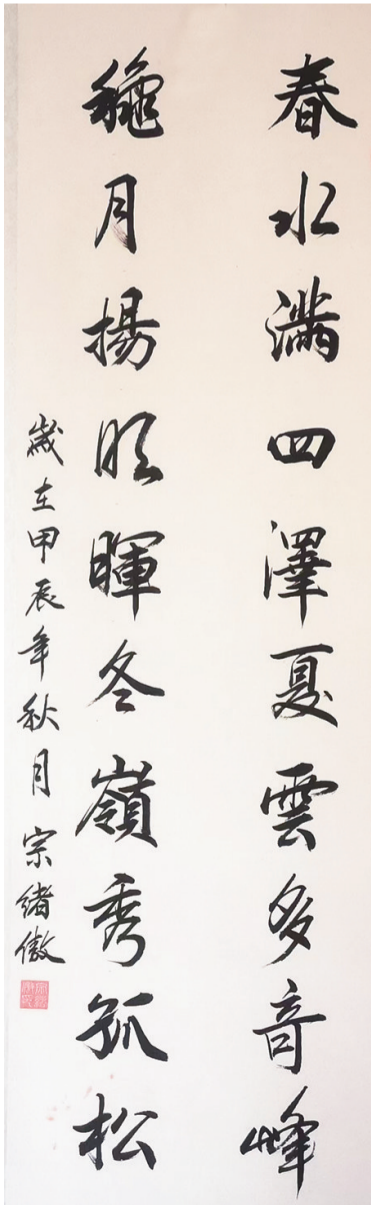 春水滿四澤夏雲多竒峰
穐月揚明暉冬嶺秀孤松
歲在甲辰年秋月宗緒傲